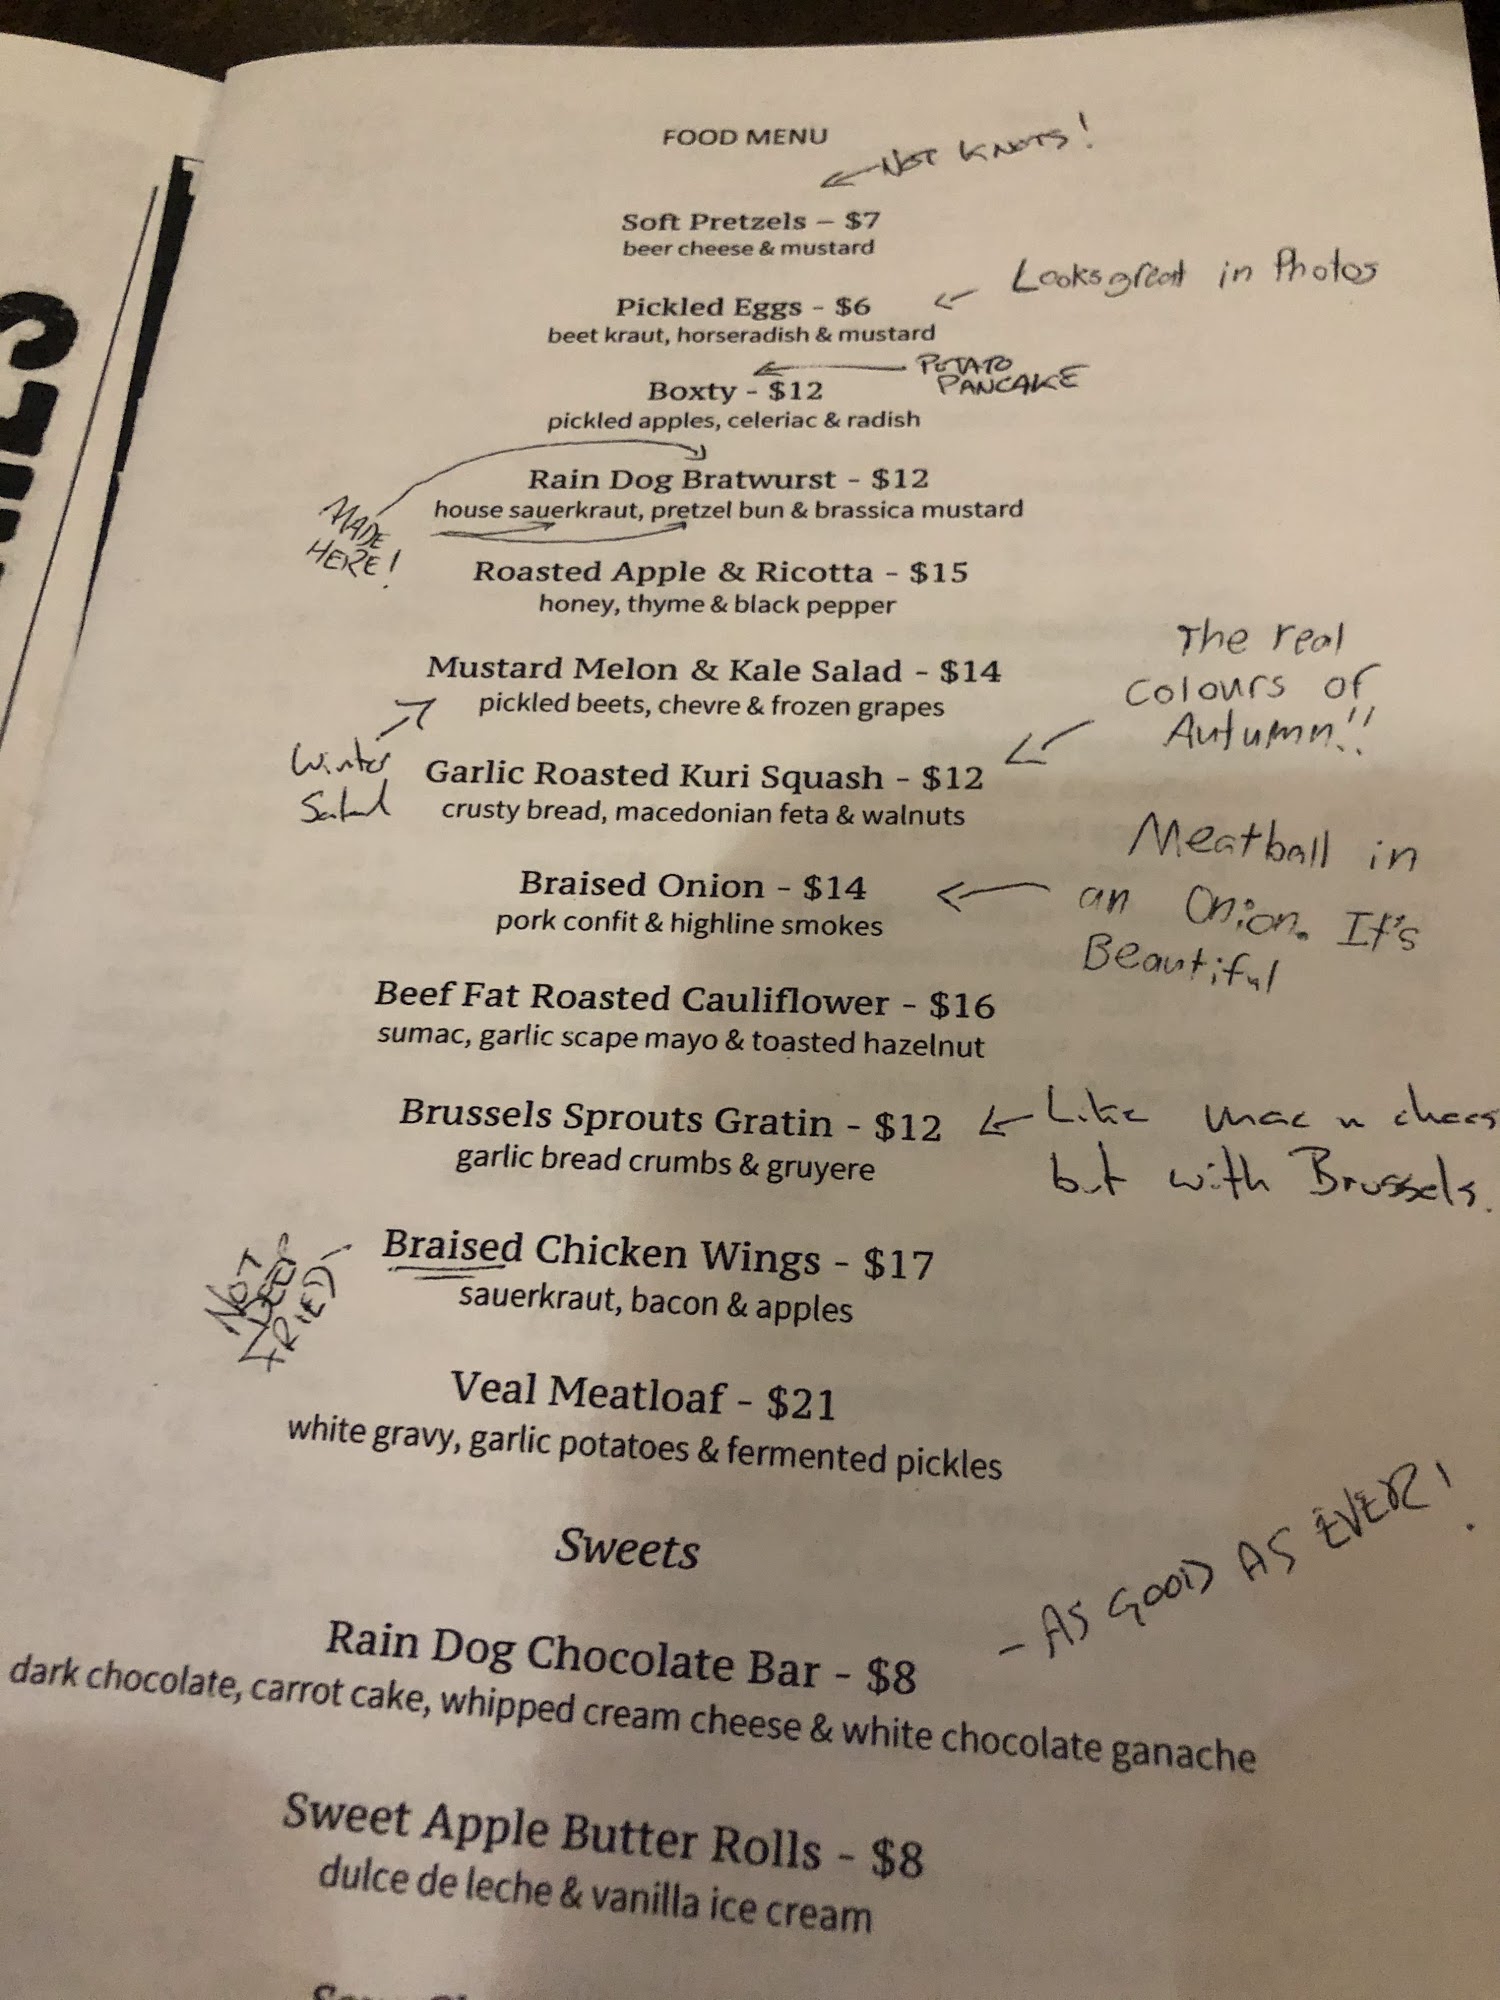 FOOD MENU
NOT KNOTS!
Soft Pretzels – $7
beer cheese & mustard
Looks great in Photos
Pickled Eggs - $6
beet kraut, horseradish & mustard
POTATO
PANCAKE
Boxty - $12
pickled apples, celeriac & radish
Rain Dog Bratwurst - $12
house sauerkraut, pretzel bun & brassica mustard
MADE
HERE!
Roasted Apple & Ricotta - $15
honey, thyme & black pepper
Mustard Melon & Kale Salad - $14
pickled beets, chevre & frozen grapes
Winter
Salad
The real
Colours of
Autumn!!
Garlic Roasted Kuri Squash - $12
crusty bread, macedonian feta & walnuts
Meatball in
an Onion. It's
Beautiful
Braised Onion - $14
pork confit & highline smokes
Beef Fat Roasted Cauliflower - $16
sumac, garlic scape mayo & toasted hazelnut
Brussels Sprouts Gratin - $12
garlic bread crumbs & gruyere
Like mac n chees
but with Brussels.
NOT
DEEP
FRIED
Braised Chicken Wings - $17
sauerkraut, bacon & apples
Veal Meatloaf - $21
white gravy, garlic potatoes & fermented pickles
Sweets
- AS GOOD AS EVER!
Rain Dog Chocolate Bar - $8
dark chocolate, carrot cake, whipped cream cheese & white chocolate ganache
Sweet Apple Butter Rolls - $8
dulce de leche & vanilla ice cream